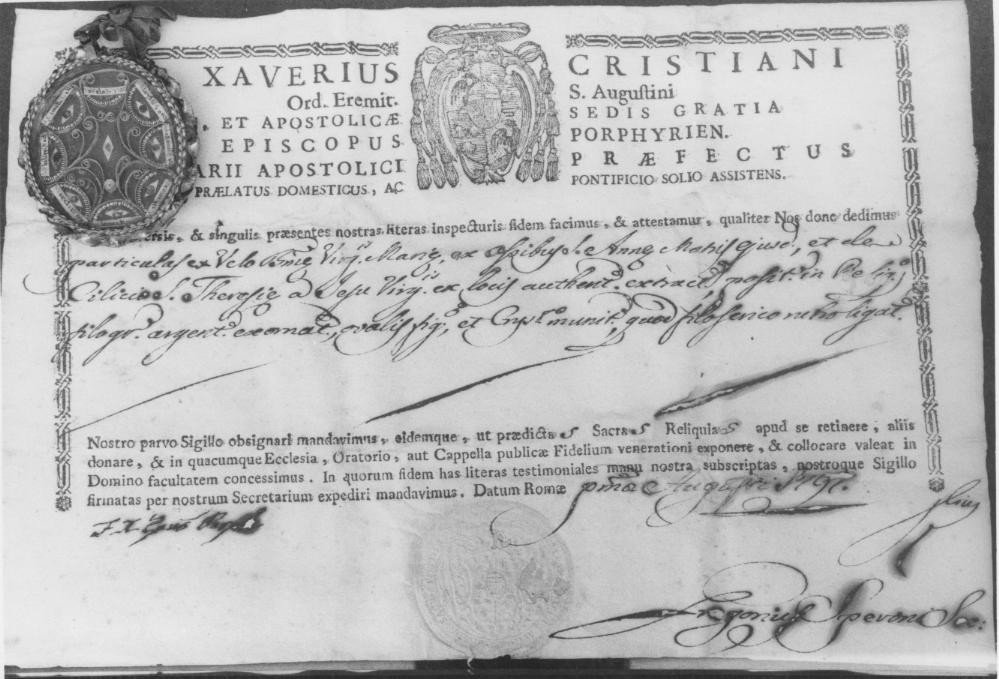 XAVERIUS CRISTIANI
Ord. Eremit. S. Auguſtini
, ET APOSTOLICÆ SEDIS GRATIA
EPISCOPUS PORPHYRIEN.
ARII APOSTOLICI PRÆFECTUS
PRÆLATUS DOMESTICUS, AC PONTIFICIO SOLIO ASSISTENS.
ersis, & singulis præsentes nostras literas inspecturis fidem facimus, & attestamur, qualiter Nos dono dedimus
particulas ex Velo Virg. Marię, ex Ossibus S. Annę Matris ejusd., et de
Cilicio S. Theresię a Jesu Virg. ex locis authent. extract. posit. in
filogr. argent. exornat., ovalis fig., et Cryst. munit., quod filo serico rubro ligat.
Nostro parvo Sigillo obsignari mandavimus, eidemque, ut prædictas Sacras Reliquias apud se retinere, aliis
donare, & in quacumque Ecclesia, Oratorio, aut Cappella publicæ Fidelium venerationi exponere, & collocare valeat in
Domino facultatem concessimus. In quorum fidem has literas testimoniales manu nostra subscriptas, nostroque Sigillo
firmatas per nostrum Secretarium expediri mandavimus. Datum Romæ Augusti 1797.
F. X.
Gregorius Speroni Sec: